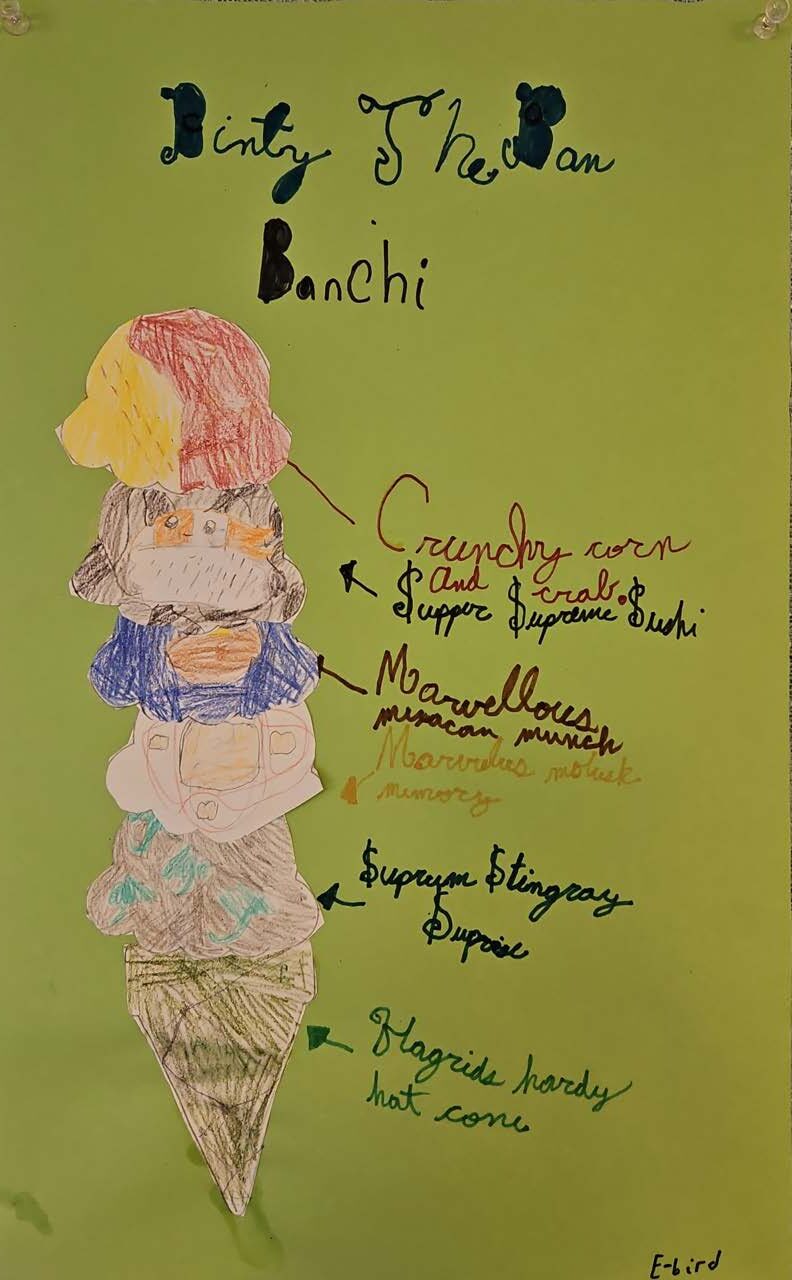 Binty The Ban
Banchi
Crunchy corn
and crab.
$upper $upreme $ushi
Marvellous
munch
mimory
$uprum $tingray
$uprise
Hagrids hardy
hat cone
E-bird